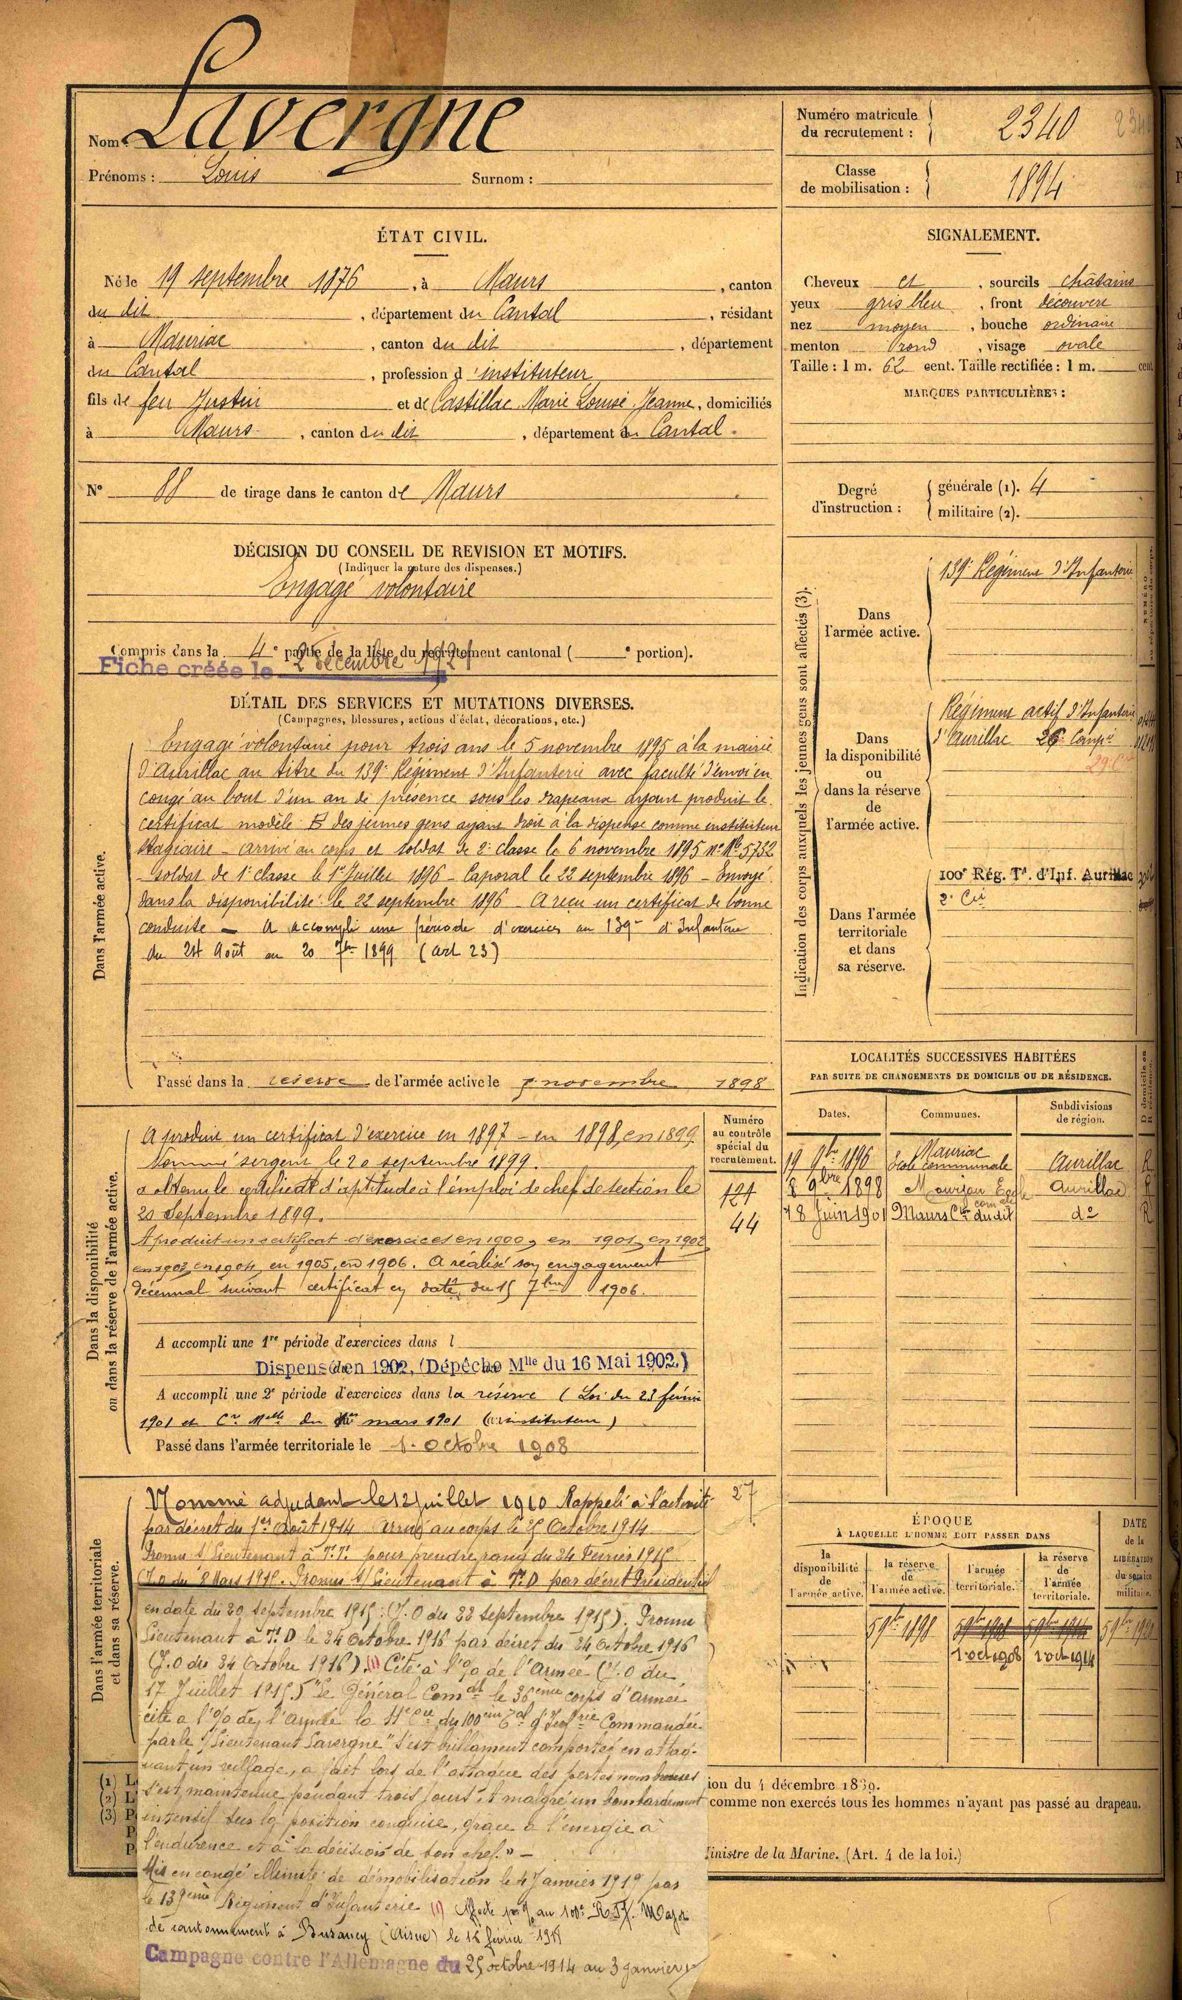 Nom : Lavergne
Prénoms : Louis Surnom :
Numéro matricule
du recrutement : 2340 2340
Classe
de mobilisation : 1894
ÉTAT CIVIL.
Né le 19 septembre 1876, à Maurs, canton
du dit, département du Cantal, résidant
à Mauriac, canton du dit, département
du Cantal, profession d'instituteur
fils de feu Justin et de Castillac Marie Louise Jeanne, domiciliés
à Maurs, canton du dit, département du Cantal.
N° 88 de tirage dans le canton de Maurs
DÉCISION DU CONSEIL DE REVISION ET MOTIFS.
(Indiquer la nature des dispenses.)
Engagé volontaire
Compris dans la 4e partie de la liste du recrutement cantonal ( e portion).
Fiche créée le 2 décembre 1921
DÉTAIL DES SERVICES ET MUTATIONS DIVERSES.
(Campagnes, blessures, actions d'éclat, décorations, etc.)
Dans l'armée active.
Engagé volontaire pour trois ans le 5 novembre 1895 à la mairie
d'Aurillac au titre du 139e Régiment d'Infanterie avec faculté d'envoi en
congé au bout d'un an de présence sous les drapeaux ayant produit le
certificat modèle B des jeunes gens ayant droit à la dispense comme instituteur
stagiaire - arrivé au corps et soldat de 2e classe le 6 novembre 1895 No Mle 5732
- soldat de 1e classe le 1er Juillet 1896 - Caporal le 22 septembre 1896 - Envoyé
dans la disponibilité le 22 septembre 1896 - A reçu un certificat de bonne
conduite - A accompli une période d'exercices au 139e d'Infanterie
du 24 Août au 20 7bre 1899 (art 23)
Passé dans la réserve de l'armée active le 5 novembre 1898
Dans la disponibilité
ou dans la réserve de l'armée active.
Numéro
au contrôle
spécial du
recrutement.
121
44
A produit un certificat d'exercice en 1897 - en 1898, en 1899
Nommé sergent le 20 septembre 1899.
a obtenu le certificat d'aptitude à l'emploi de chef de section le
20 septembre 1899.
A produit un certificat d'exercices en 1900, en 1901, en 1902
en 1903, en 1904, en 1905, en 1906. A réalisé son engagement
décennal suivant certificat en date du 15 7bre 1906.
A accompli une 1re période d'exercices dans l
Dispensé en 1902, (Dépêche Mlle du 16 Mai 1902.)
A accompli une 2e période d'exercices dans la réserve (Loi du 23 février
1901 et Cre Mlle du mars 1901 (instituteur)
Passé dans l'armée territoriale le 1 octobre 1908
Dans l'armée territoriale
et dans sa réserve.
27
Nommé adjudant le 12 juillet 1910 Rappelé à l'activité
par décret du 1er août 1914 Arrivé au corps le 25 Octobre 1914
Promu S/Lieutenant à T.T. pour prendre rang du 24 Février 1915
(J.O du 8 Mars 1915. Promu S/Lieutenant à T.D par décret Présidentiel
en date du 20 septembre 1915 (J.O du 22 septembre 1915). Promu
Lieutenant à T.D le 24 Octobre 1916 par décret du 24 Octobre 1916
(J.O du 31 Octobre 1916). (1) Cité à l'% de l'Armée (J.O du
17 Juillet 1915) "Le Général Comdt le 36ème corps d'armée
cite à l'% de l'armée la 11e Cie du 100ème Tal d'Infrie Commandée
par le S/Lieutenant Lavergne" S'est brillament comportée en attaq-
uant un village, a fait lors de l'attaque des pertes nombreuses
s'est maintenue pendant trois jours et malgré un bombardement
intensif sur la position conquise, grâce à l'énergie à
l'endurence et à la décision de son chef." -
Mis en congé illimité de démobilisation le 4 Janvier 1919 par
le 139ème Régiment d'Infanterie (1) Affecté au 100e R.T.I. Major
de cantonnement à Buzancy (Aisne) le 16 février
Campagne contre l'Allemagne du 25 octobre 1914 au 3 janvier
SIGNALEMENT.
Cheveux et, sourcils châtains
yeux gris bleu, front découvert
nez moyen, bouche ordinaire
menton rond, visage ovale
Taille : 1 m. 62 cent. Taille rectifiée : 1 m. cent
MARQUES PARTICULIÈRES :
Degré
d'instruction :
générale (1). 4
militaire (2).
Indication des corps auxquels les jeunes gens sont affectés (3).
Dans
l'armée active.
139e Régiment d'Infanterie
Dans
la disponibilité
ou
dans la réserve
de
l'armée active.
Régiment actif d'Infanterie
d'Aurillac 26 Compie
29 Cie
Dans l'armée
territoriale
et dans
sa réserve.
100e Rég. Tal d'Inf. Aurillac
2e Cie
LOCALITÉS SUCCESSIVES HABITÉES
PAR SUITE DE CHANGEMENTS DE DOMICILE OU DE RÉSIDENCE.
D domicile ou
R résidence.
Dates. Communes. Subdivisions
de région.
19 9bre 1896 Mauriac École communale Aurillac R
8 9bre 1898 Mourjou Ecole com Aurillac R
18 Juin 1901 Maurs Con dudit do R
ÉPOQUE
À LAQUELLE L'HOMME DOIT PASSER DANS
DATE
de la
LIBÉRATION
du service
militaire.
la
disponibilité
de
l'armée active.
la réserve
de
l'armée active.
l'armée
territoriale.
la réserve
de
l'armée
territoriale.
5 9bre 1898 5 9bre 1908 5 9bre 1914 5 9bre 1920
1 oct 1908 1 oct 1914
(1) L
(2) L
(3) P
ion du 4 décembre 1889.
comme non exercés tous les hommes n'ayant pas passé au drapeau.
Ministre de la Marine. (Art. 4 de la loi.)